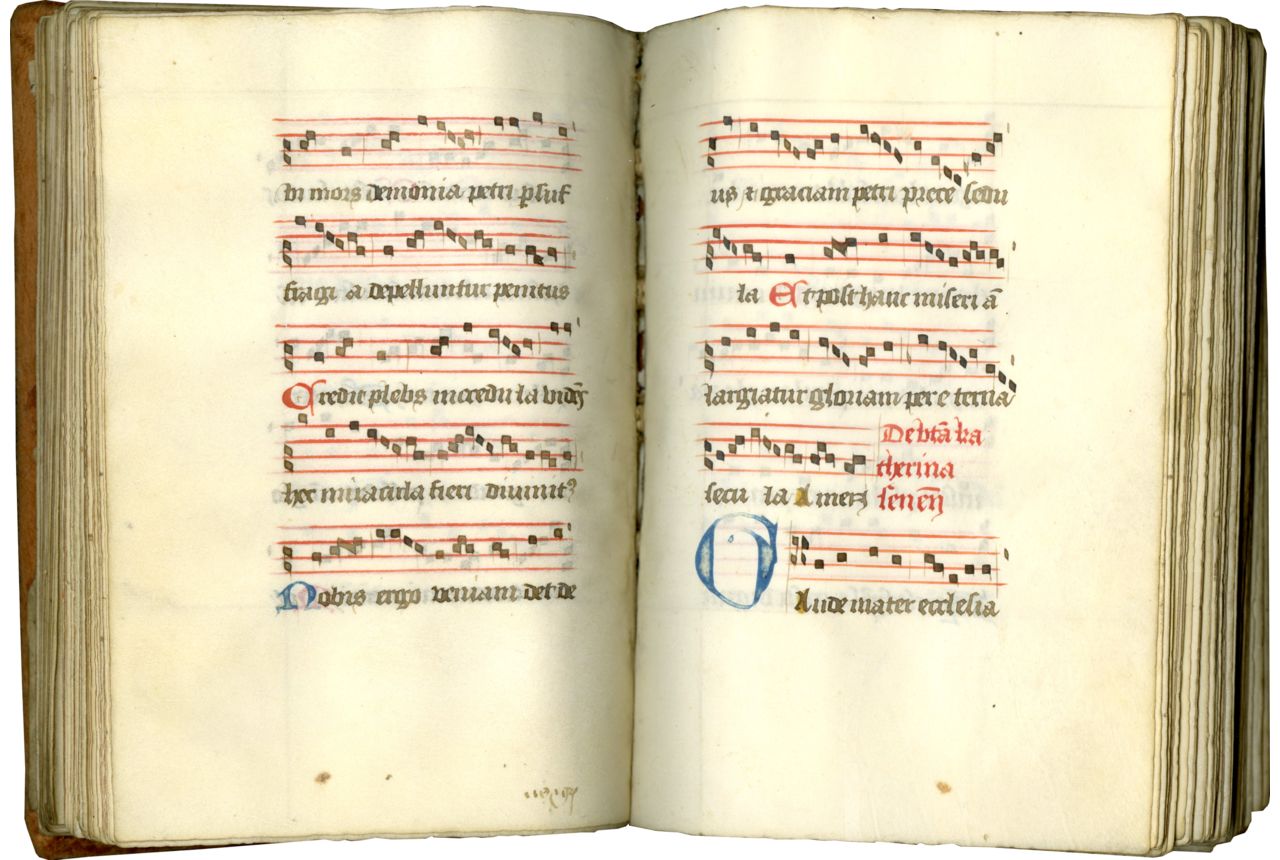 In mors demonia petri p suf
fragi a depelluntur penitus
Credit plebs incredu la vidēs
hec miracula fieri diuinit⁹
Nobis ergo veniam det de
us ⁊ graciam petri prece sedu
la Et post hanc miseri ā
largiatur gloriam per e terna
secu la Amen
De btā ka
therina
senen̄
Gaude mater ecclesia